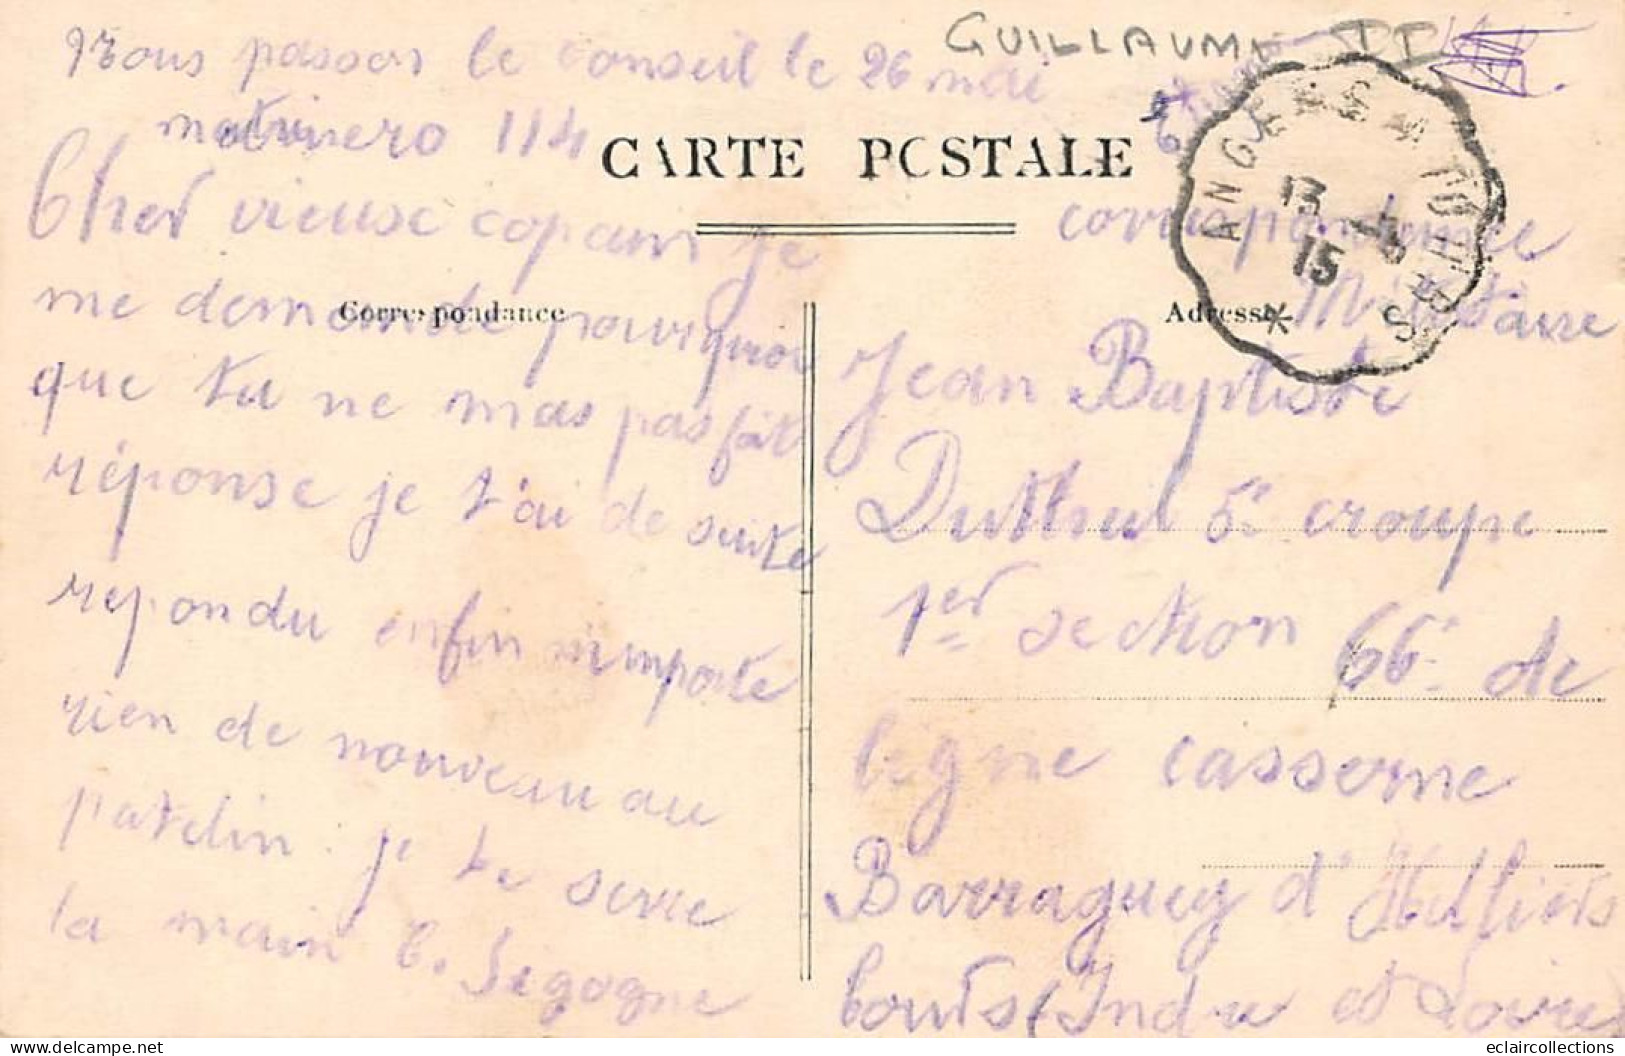 GUILLAUME II
Nous passons le conseil le 26 mai
matinero 114
CARTE POSTALE
ANGERS À TOURS
13 -5
15
Cher vieuse copain je
me demande pourquoi
que tu ne mas pas fait
réponse je t'ai de suite
repondu enfin n'importe
rien de nouveau au
patelin. je te serre
la main C. Segogne
Correspondance
Adresse
correspondance
Militaire
Jean Baptiste
Dutheul 5e croupe
1er section 66e de
ligne casserne
Barraguey d'Hilliers
Tours (Indre et Loire)
eclaircollections
delcampe.net